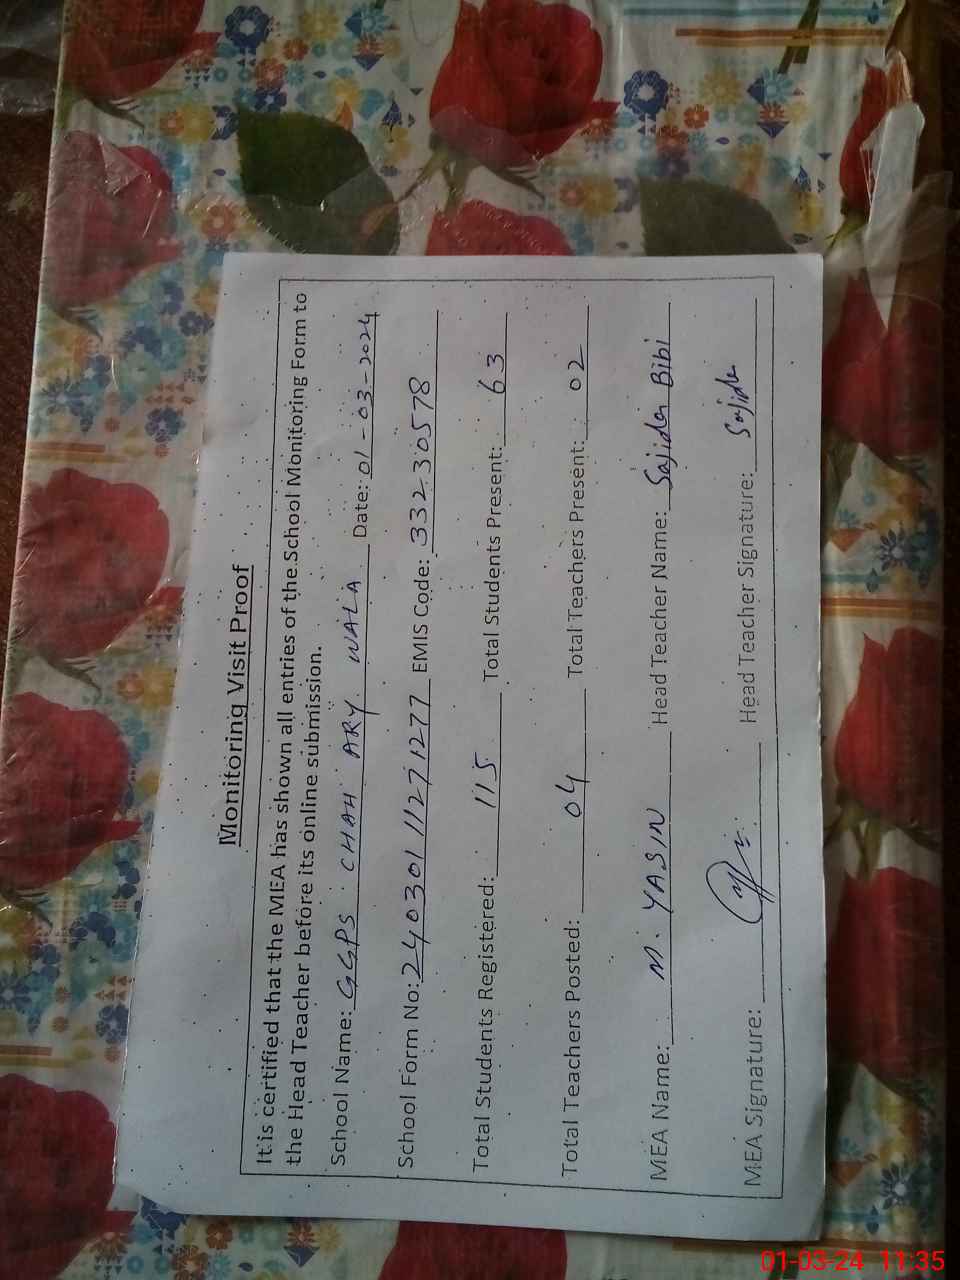 Monitoring Visit Proof
It is certified that the MEA has shown all entries of the School Monitoring Form to
the Head Teacher before its online submission.
School Name: GGPS CHAH ARY WALA Date: 01-03-2024
School Form No: 24030111271277 EMIS Code: 33230578
Total Students Registered: 115 Total Students Present: 63
Total Teachers Posted: 04 Total Teachers Present: 02
MEA Name: M. YASIN Head Teacher Name: Sajida Bibi
MEA Signature: Head Teacher Signature: Sajida
01-03-24 11:35